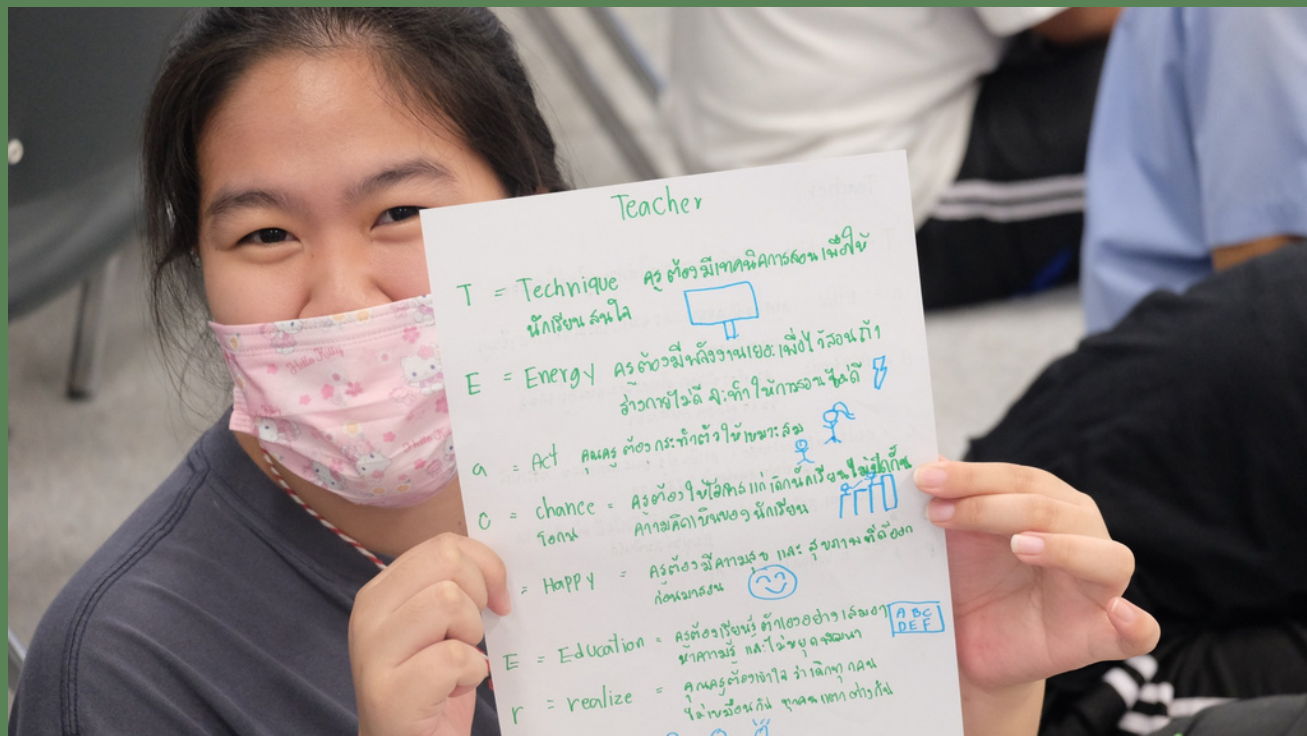 Teacher
T = Technique ครูต้องมีเทคนิคการสอนเพื่อให้
นักเรียนสนใจ
E = Energy ครูต้องมีพลังงานเยอะเพื่อไว้สอนถ้า
ร่างกายไม่ดี จะทำให้การสอนไม่ดี
a = Act คุณครูต้องกระทำตัวให้เหมาะสม
c = chance = ครูต้องให้โอกาสแก่เด็กนักเรียนไม่ปิดกั้น
โอกาส ความคิดเห็นของนักเรียน
= Happy = ครูต้องมีความสุข และ สุขภาพที่ดีออก
ก่อนมาสอน
E = Education = ครูต้องเรียนรู้ ตัวเองอย่างเสมอ
หาความรู้ และไม่หยุดพัฒนา
A B C
D E F
r = realize = คุณครูต้องเข้าใจ ว่าเด็กทุกคน
ไม่เหมือนกัน ทุกคนแตกต่างกัน
Hello Kitty